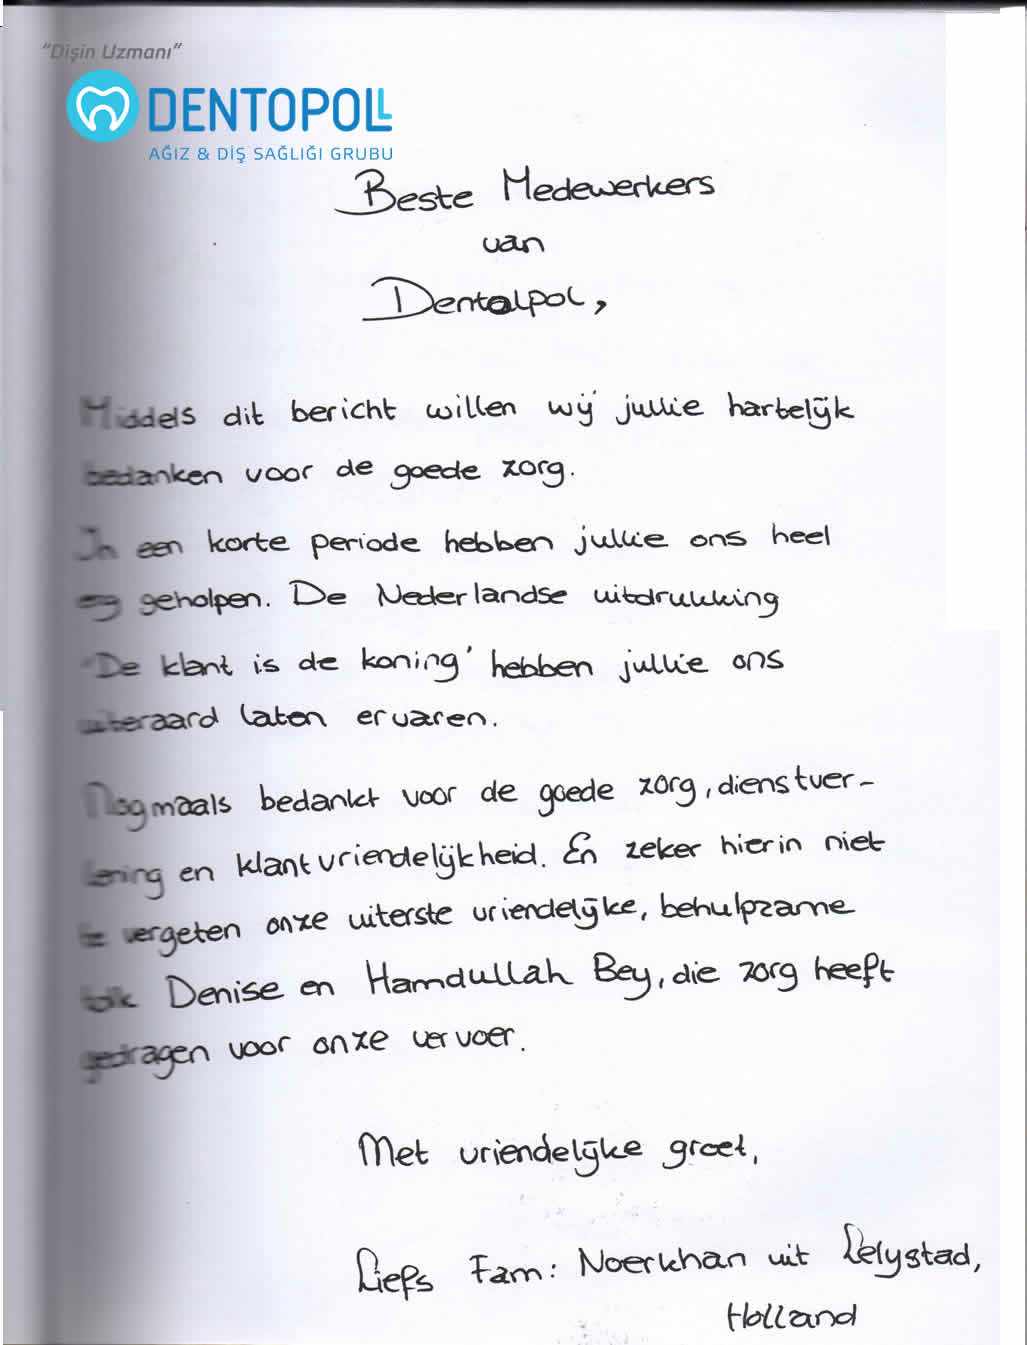 "Dişin Uzmanı"
DENTOPOLL
AĞIZ & DİŞ SAĞLIĞI GRUBU
Beste Medewerkers
van
Dentalpol,
Middels dit bericht willen wij jullie hartelijk
bedanken voor de goede zorg.
In een korte periode hebben jullie ons heel
erg geholpen. De Nederlandse uitdrukking
'De klant is de koning' hebben jullie ons
uiteraard laten ervaren.
Nogmaals bedankt voor de goede zorg, dienstver-
lening en klantvriendelijkheid. En zeker hierin niet
te vergeten onze uiterste vriendelijke, behulpzame
tolk Denise en Hamdullah Bey, die zorg heeft
gedragen voor onze vervoer.
Met vriendelijke groet,
Liefs Fam: Noerkhan uit Lelystad,
Holland